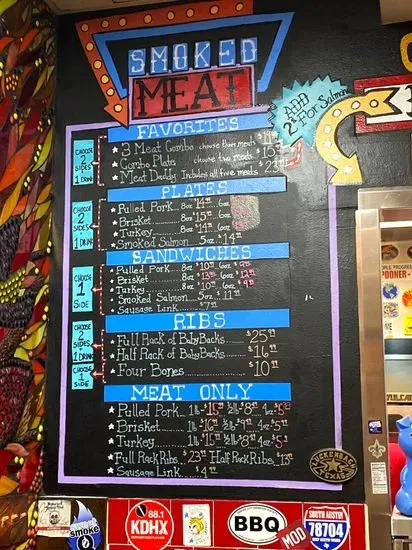 SMOKED
MEAT
ADD
2⁰⁰ For Salmon
FAVORITES
CHOOSE
2
SIDES
1 DRINK
★ 3 Meat Combo choose three meats
★ Combo Plate choose two meats
★ Meat Daddy Includes all five meats 23
PLATES
CHOOSE
2
SIDES
1 DRINK
★ Pulled Pork 8oz $14 6oz
★ Brisket 8oz $15 6oz
★ Turkey 8oz $14 6oz
★ Smoked Salmon 5oz $14
SANDWICHES
CHOOSE
1
SIDE
★ Pulled Pork 8oz $10 6oz $9
★ Brisket 8oz $13 6oz $12
★ Turkey 8oz $10 6oz $9
★ Smoked Salmon 5oz $11
★ Sausage Link $7
RIBS
CHOOSE
2
SIDES
1 DRINK
★ Full Rack of BabyBacks $25
★ Half Rack of BabyBacks $16
CHOOSE
1
SIDE
★ Four Bones $10
MEAT ONLY
★ Pulled Pork 1lb $15 ½lb $8 4oz $5
★ Brisket 1lb $16 ½lb $9 4oz $5
★ Turkey 1lb $15 ½lb $8 4oz $5
★ Full Rack Ribs $23 Half Rack Ribs $13
★ Sausage Link $4
LUCKENBACH
TEXAS
smoke
88.1
KDHX
BBQ
MOD
SOUTH AUSTIN
78704